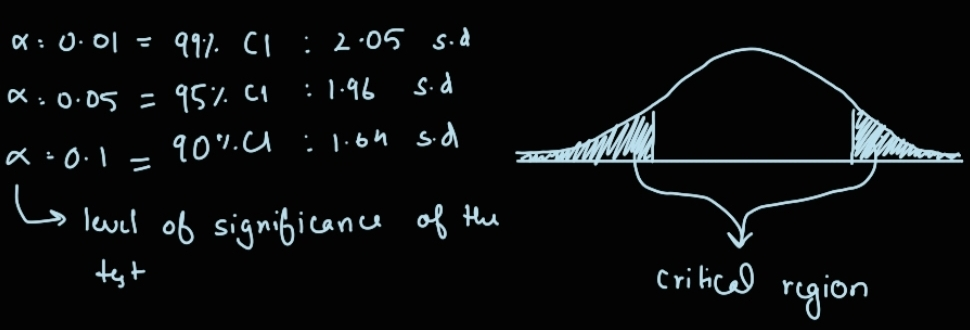 α : 0.01 = 99% CI : 2.05 s.d
α : 0.05 = 95% CI : 1.96 s.d
α : 0.1 = 90% CI : 1.64 s.d
level of significance of the
test
critical region